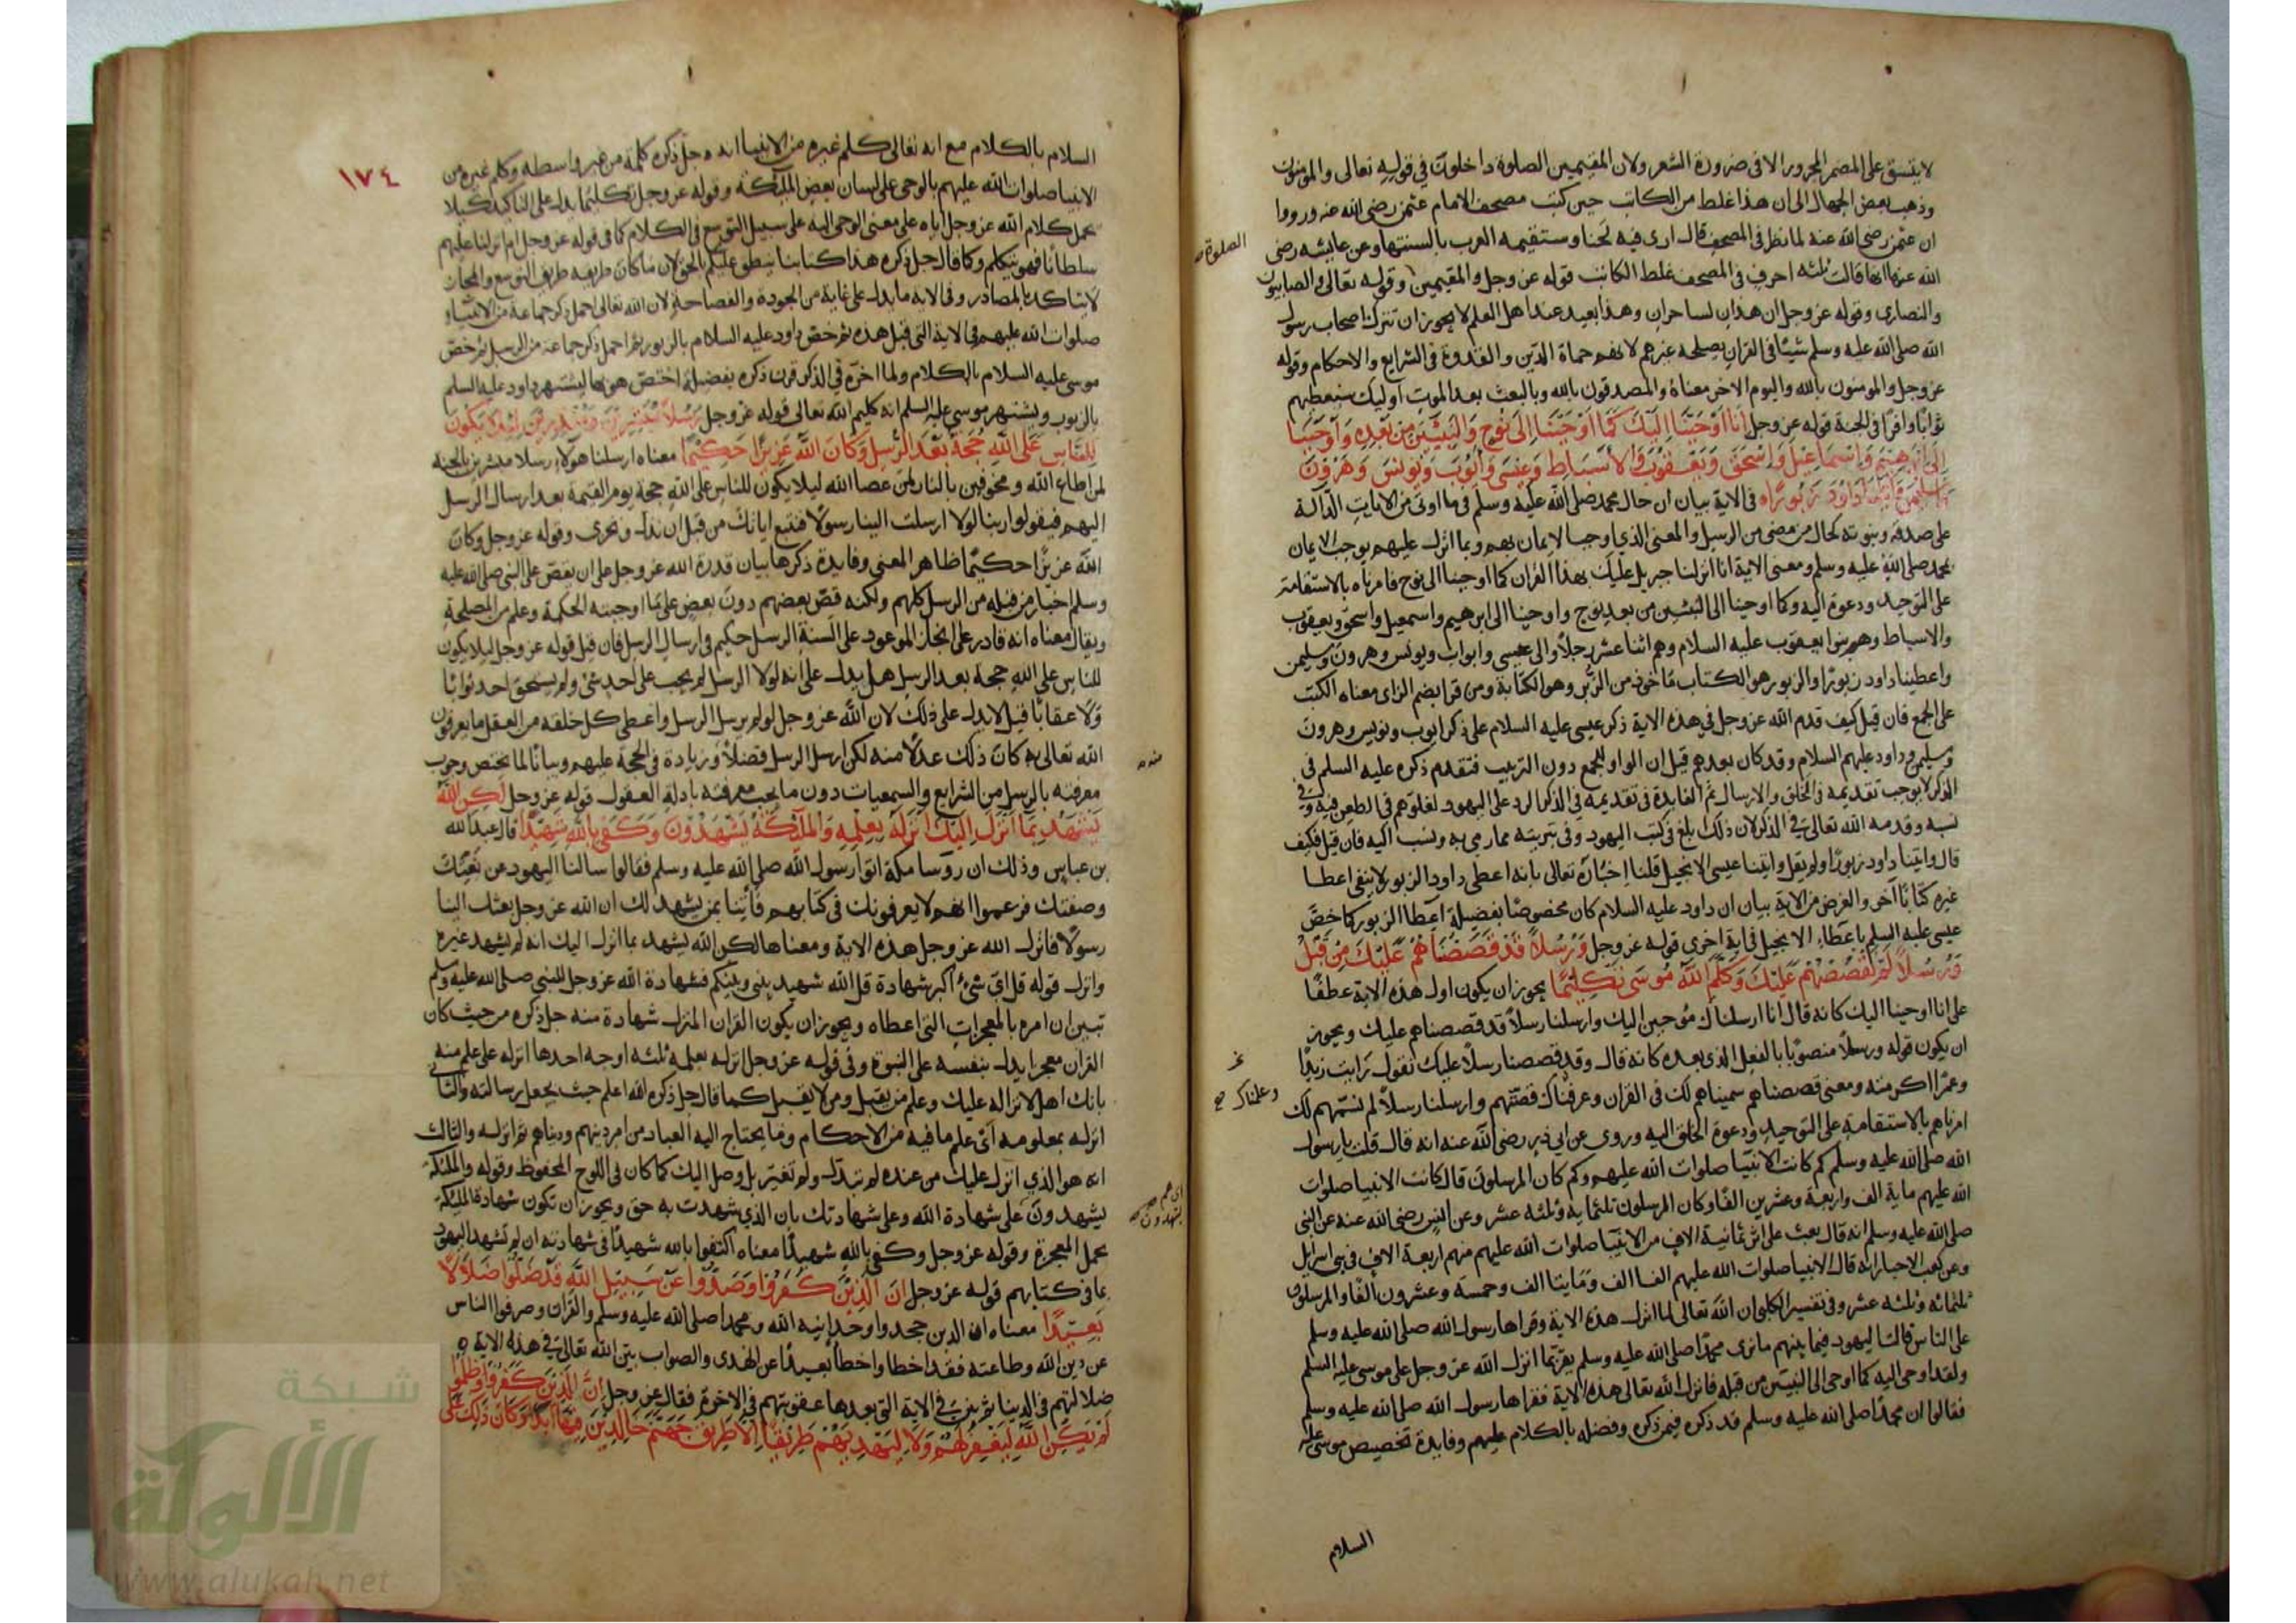 لا يتسق على المضمر المجرور الا فى ضرورة الشعر ولان المقيمين الصلوة داخلون في قوله تعالى والمومنون
وذهب بعض الجهال الى ان هذا غلط من الكاتب حين كتب مصحف الامام عثمن رضى الله عنه ورووا
ان عثمن رضى الله عنه لما نظر فى المصحف قال ارى فيه لحنا وستقيمه العرب بالسنتها وعن عايشه رضى
الله عنها انها قالت ثلثه احرف فى المصحف غلط الكاتب قوله عز وجل والمقيمين وقوله تعالى والصابيون
الصلوة
والنصارى وقوله عز وجل ان هذان لساحران وهذا بعيد عند اهل العلم لا يجوز ان تترك اصحاب رسول
الله صلى الله عليه وسلم شيئا فى القران يصلحه غيرهم لانهم حماة الدين والقدوة فى الشرايع والاحكام وقوله
عز وجل والمومنون بالله واليوم الاخر معناه والمصدقون بالله وبالبعث بعد الموت اوليك سنعطيهم
ثوابا وافرا فى الجنة قوله عز وجل انا اوحينا اليك كما اوحينا الى نوح والنبيين من بعده واوحينا
الى ابرهيم واسماعيل واسحق ويعقوب والاسباط وعيسى وايوب ويونس وهرون
وسليمن واتينا داود زبورا في الاية بيان ان حال محمد صلى الله عليه وسلم في ما اوتى من الايات الدالة
على صدقه ونبوته كحال من مضى من الرسل والمعنى الذي اوجب الايمان بهم وبما انزل عليهم يوجب الايمان
بمحمد صلى الله عليه وسلم ومعنى الاية انا انزلنا جبريل عليك بهذا القران كما اوحينا الى نوح فامرناه بالاستقامة
على التوحيد ودعوة اليه وكما اوحينا الى النبيين من بعد نوح واوحينا الى ابرهيم واسمعيل واسحق ويعقوب
والاسباط وهم بنوا يعقوب عليه السلام وهم اثنا عشر رجلا والى عيسى وايوب ويونس وهرون وسليمن
واعطينا داود زبورا والزبور هو الكتاب ماخوذ من الزبر وهو الكتابة ومن قرا بضم الزاى معناه الكتب
على الجمع فان قيل كيف قدم الله عز وجل في هذه الاية ذكر عيسى عليه السلام على ذكر ايوب ويونس وهرون
وسليمن وداود عليهم السلام وقد كان بعدهم قيل ان الواو للجمع دون الترتيب فتقدم ذكره عليه السلم في
الذكر لا يوجب تقديمه فى الخلق والارسال ثم الفايدة فى تقديمه فى الذكر الرد على اليهود لغلوهم فى الطعن فيه وفى
نسبه وقدمه الله تعالى في الذكر لان ذلك ابلغ فى كتب اليهود وفى تبريته مما رمى به ونسب اليه فان قيل فكيف
قال واتينا داود زبورا ولم يقل واتينا عيسى الانجيل قلنا اخباره تعالى بانه اعطى داود الزبور لا ينفى اعطا
غيره كتابا آخر والغرض من الاية بيان ان داود عليه السلام كان مخصوصا بفضيلة اعطا الزبور كما خص
عيسى عليه السلم باعطاء الانجيل فى اية اخرى قوله عز وجل ورسلا قد قصصناهم عليك من قبل
ورسلا لم نقصصهم عليك وكلم الله موسى تكليما يجوز ان يكون اول هذه الاية عطفا
على انا اوحينا اليك كانه قال انا ارسلناك موحين اليك وارسلنا رسلا قد قصصناهم عليك ويجوز
ان يكون قوله ورسلا منصوبا بالفعل الذى بعده كانه قال وقد قصصنا رسلا عليك تقول رايت زيدا
وعمرا اكرمته ومعنى قصصناهم سميناهم لك فى القران وعرفناك قصتهم وارسلنا رسلا لم نسمهم لك
وعلمناك صح
امرناهم بالاستقامة على التوحيد ودعوة الخلق اليه وروى عن ابي ذر رضى الله عنه انه قال قلت يا رسول
الله صلى الله عليه وسلم كم كانت الانبيا صلوات الله عليهم وكم كان المرسلون قال كانت الانبيا صلوات
الله عليهم ماية الف واربعة وعشرين الفا وكان المرسلون ثلثماية وثلثه عشر وعن انس رضى الله عنه عن النبى
صلى الله عليه وسلم انه قال بعث على اثر ثمانية الاف من الانبيا صلوات الله عليهم منهم اربعة الاف فى بنى اسرايل
وعن كعب الاحبار انه قال الانبيا صلوات الله عليهم الفا الف ومايتا الف وخمسة وعشرون الفا والمرسلون
ثلثمائه وثلثه عشر وفى تفسير الكلبى ان الله تعالى لما انزل هذه الاية وقراها رسول الله صلى الله عليه وسلم
على الناس قالت اليهود فيما بينهم ما نرى محمدا صلى الله عليه وسلم يقر بما انزل الله عز وجل على موسى عليه السلم
ولقد اوحى اليه كما اوحى الى النبيين من قبله فانزل الله تعالى هذه الاية فقراها رسول الله صلى الله عليه وسلم
فقالوا ان محمدا صلى الله عليه وسلم قد ذكره فيمن ذكره وفضله بالكلام عليهم وفايدة تخصيص موسى عليه
السلام
١٧٤
السلام بالكلام مع انه تعالى كلم غيره من الانبيا انه جل ذكره كلمه من غير واسطه وكلم غيره من
الانبيا صلوات الله عليهم بالوحى على لسان بعض الملائكة وقوله عز وجل تكليما يدل على التاكيد كيلا
يحمل كلام الله عز وجل اياه على معنى الوحى اليه على سبيل التوسع فى الكلام كما فى قوله عز وجل ام انزلنا عليهم
سلطانا فهو يتكلم وكما قال جل ذكره هذا كتابنا ينطق عليكم بالحق لان ما كان طريقه طريق التوسع والمجاز
لا يتاكد بالمصادر وفى الاية ما يدل على غاية من الجودة والفصاحة لان الله تعالى اجمل ذكر جماعة من الانبياء
صلوات الله عليهم فى الاية التى قبل هذه ثم خص داود عليه السلام بالزبور ثم اجمل ذكر جماعة من الرسل ثم خص
موسى عليه السلام بالكلام ولما اخره فى الذكر قرن ذكره بفضيلة اختص هو بها ليشتهر داود عليه السلم
بالزبور ويشتهر موسى عليه السلم انه كليم الله تعالى قوله عز وجل رسلا مبشرين ومنذرين لئلا يكون
للناس على الله حجة بعد الرسل وكان الله عزيزا حكيما معناه ارسلنا هولاء رسلا مبشرين بالجنة
لمن اطاع الله ومخوفين بالنار لمن عصا الله ليلا يكون للناس على الله حجة يوم القيمة بعد ارسال الرسل
اليهم فيقولوا ربنا لولا ارسلت الينا رسولا فنتبع اياتك من قبل ان نذل ونخزى وقوله عز وجل وكان
الله عزيزا حكيما ظاهر المعنى وفايدة ذكرها بيان قدرة الله عز وجل على ان يقص على النبى صلى الله عليه
وسلم اخبار من قبله من الرسل كلهم ولكنه قص بعضهم دون بعض على ما اوجبته الحكمة وعلم من المصلحة
ويقال معناه انه قادر على انجاز الموعود على السنة الرسل حكيم فى ارسال الرسل فان قيل قوله عز وجل ليلا يكون
للناس على الله حجة بعد الرسل هل يدل على انه لولا الرسل لم يجب على احد شئ ولم يستحق احد ثوابا
ولا عقابا قيل لا يدل على ذلك لان الله عز وجل لو لم يرسل الرسل واعطى كل خلقه من العقل ما يعرفون
الله تعالى به كان ذلك عدلا منه لكن ارسل الرسل فضلا وزيادة فى الحجة عليهم وبيانا لما يختص وجوب
منه
معرفته بالرسل من الشرايع والسمعيات دون ما يجب معرفته بادلة العقول قوله عز وجل لكن الله
يشهد بما انزل اليك انزله بعلمه والملائكة يشهدون وكفى بالله شهيدا قال عبد الله
بن عباس وذلك ان روسا مكة اتوا رسول الله صلى الله عليه وسلم فقالوا سالنا اليهود عن نعتك
وصفتك فزعموا انهم لا يعرفونك فى كتابهم فاتنا بمن يشهد لك ان الله عز وجل بعثك الينا
رسولا فانزل الله عز وجل هذه الاية ومعناها لكن الله يشهد بما انزل اليك انه لم يشهد غيره
وانزل قوله قل اى شئ اكبر شهادة قل الله شهيد بينى وبينكم فشهادة الله عز وجل للنبي صلى الله عليه وسلم
تبين ان امره بالمعجزات التى اعطاه ويجوز ان يكون القران المنزل شهادة منه جل ذكره من حيث كان
القران معجزا يدل بنفسه على النبوة وفى قوله عز وجل انزله بعلمه ثلثه اوجه احدها انزله على علم منه
بانك اهل لانزاله عليك وعلم من يقبل ومن لا يقبل كما قال جل ذكره الله اعلم حيث يجعل رسالته والثانى
انزله بمعلومه اى علم ما فيه من الاحكام وما يحتاج اليه العباد من امر دينهم ودنياهم ثم انزله والثالث
انه هو الذي انزل عليك من عنده لم تبدل ولم تغير بل وصل اليك كما كان فى اللوح المحفوظ وقوله والملئكة
يشهدون على شهادة الله وعلى شهادتك بان الذي شهدت به حق ويجوز ان تكون شهادة الملئكة
يشهدون
بحمل المعجزة وقوله عز وجل وكفى بالله شهيدا معناه اكتفوا بالله شهيدا فى شهادته ان لم تشهد اليهود
بما فى كتابهم قوله عز وجل ان الذين كفروا وصدوا عن سبيل الله قد ضلوا ضلالا
بعيدا معناه ان الذين جحدوا وحدانيه الله ومحمدا صلى الله عليه وسلم والقران وصرفوا الناس
عن دين الله وطاعته فقد اخطا واخطا بعيدا عن الهدى والصواب بين الله تعالى فى هذه الاية
ضلالتهم فى الدنيا ثم بين فى الاية التى بعدها عقوبتهم فى الاخرة فقال عز وجل ان الذين كفروا وظلموا
لم يكن الله ليغفر لهم ولا ليهديهم طريقا الا طريق جهنم خالدين فيها ابدا وكان ذلك على
شبكة
الألوكة
www.alukah.net